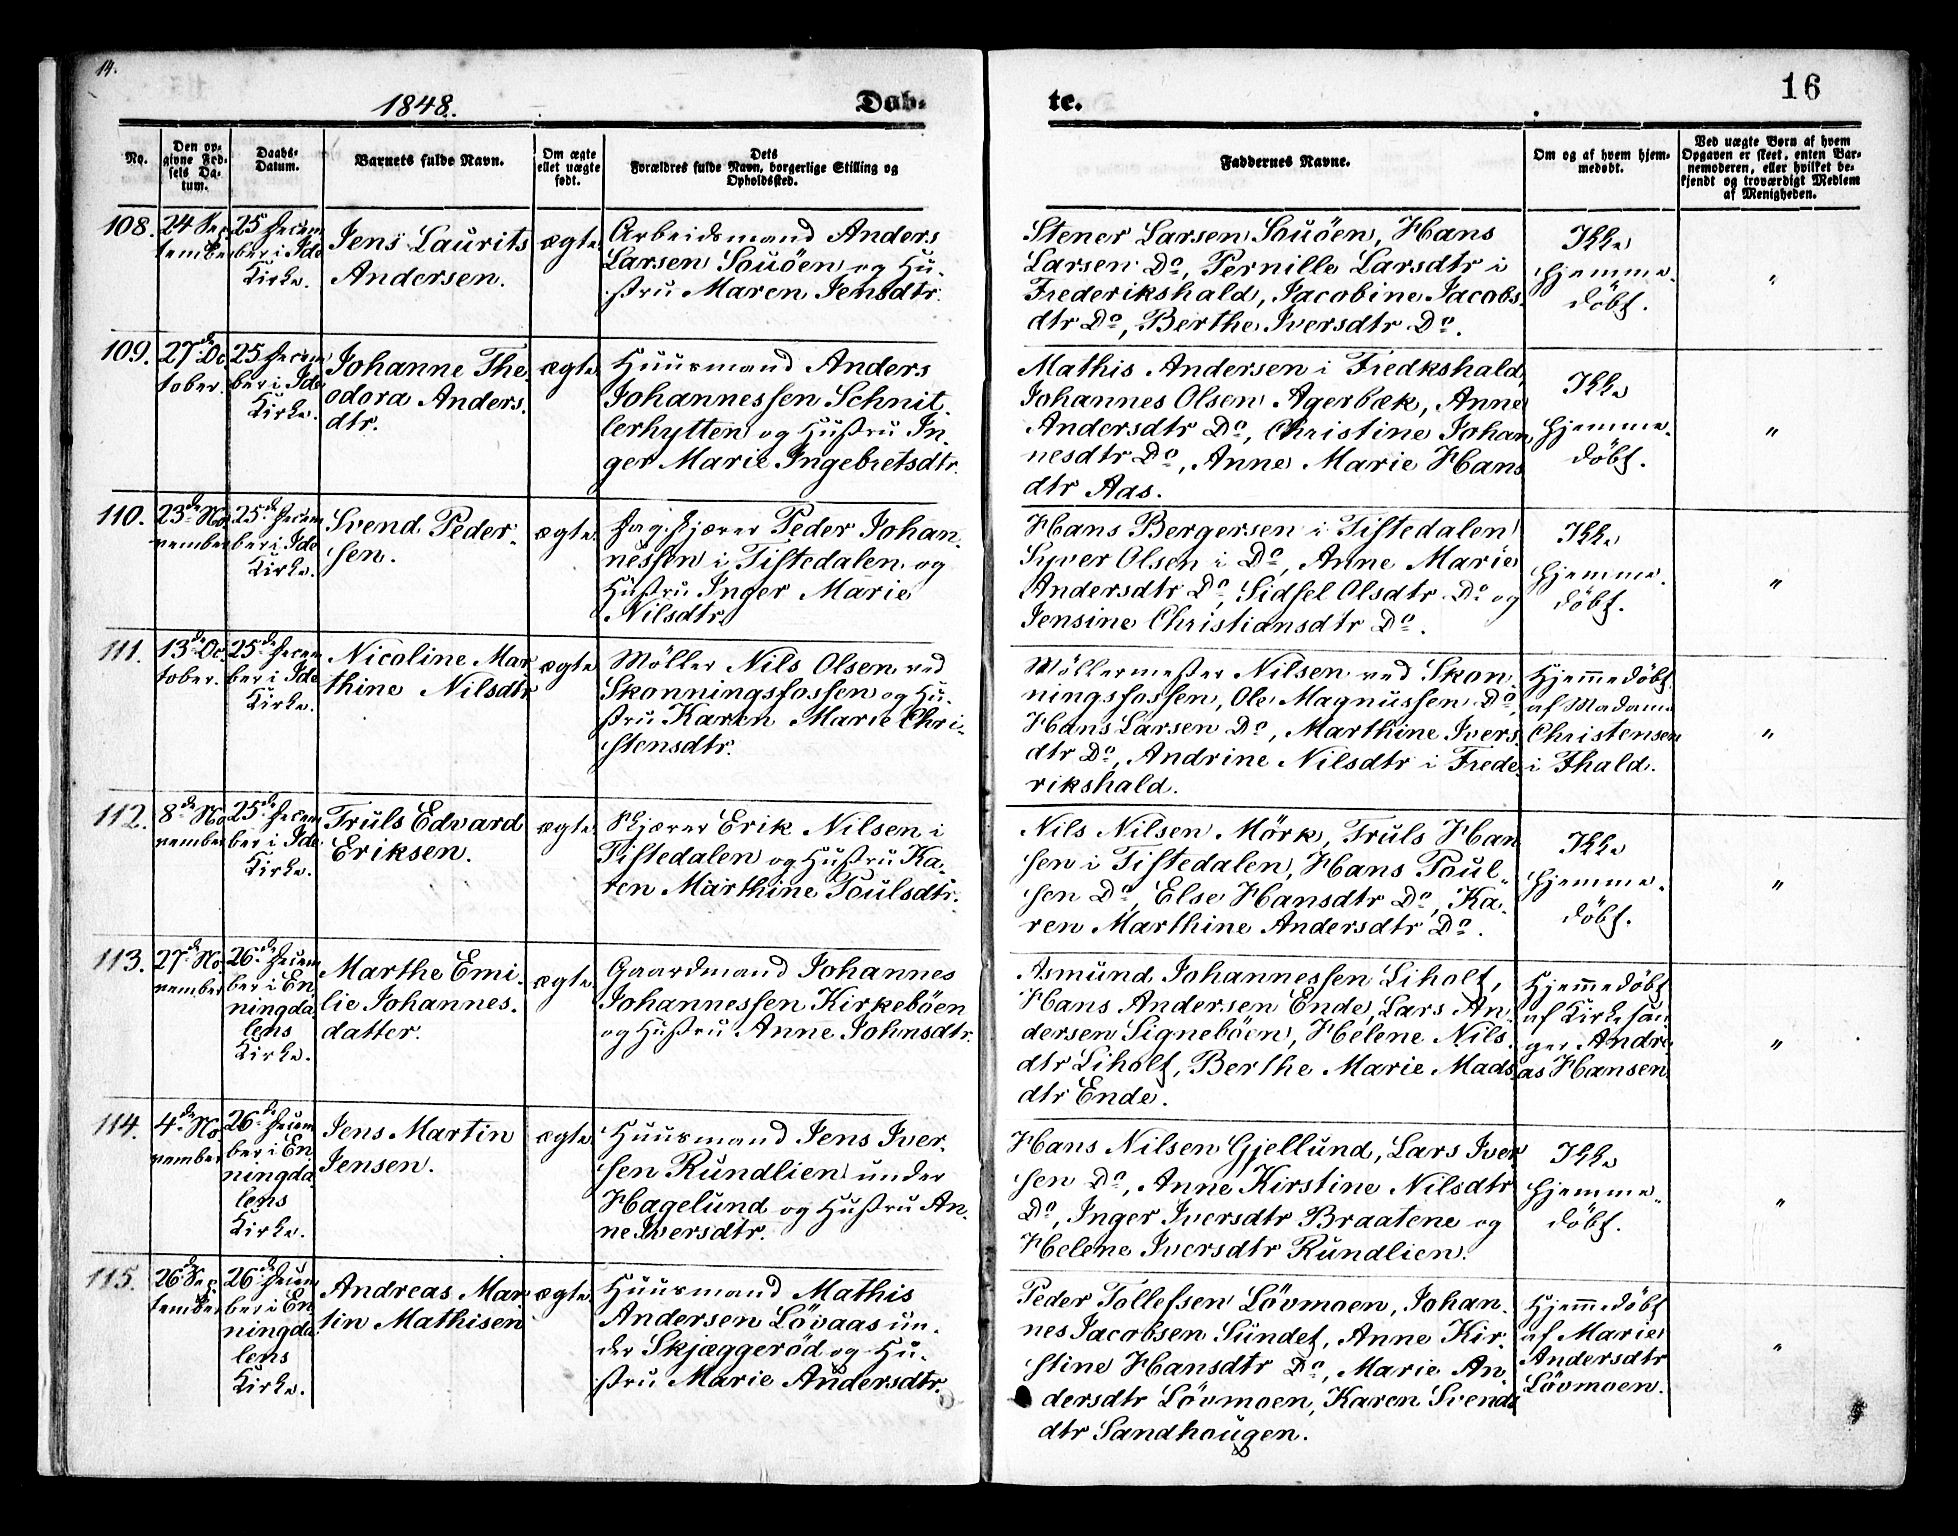 14.
1848.
Døb-
te.
16
No.
Den op-
givne Fød-
sels Da-
tum.
Daabs-
Datum.
Barnets fulde Navn.
Om ægte
ellet uægte
født.
Dets
Forældres fulde Navn, borgerlige Stilling og
Opholdssted.
Faddernes Navne.
Om og af hvem hjem-
medøbt.
Ved uægte Børn af hvem
Opgaven er skeet, enten Bar-
nemoderen, eller hvilket be-
kjendt og troværdigt Medlem
af Menigheden.
108.
24 Sep
tember
25 Decem
ber i Ide
Kirke.
Jens Laurits
Andersen.
ægte
Arbeidsmand Anders
Larsen Souöen og Hu-
stru Maren Jensdtr.
Stener Larsen Souöen, Hans
Larsen Do, Pernille Larsdtr i
Frederikshald, Jacobine Jacobs
dtr Do, Berthe Iversdtr Do.
Ikke
hjemme-
döbt.
"
109.
27de Oc
tober.
25 Decem
ber i Ide
Kirke.
Johanne The
odora Anders.
dtr.
ægte.
Huusmand Anders
Johannessen Schnit-
lerhytten og Hustru In-
ger Marie Ingebretsdtr.
Mathis Andersen i Fredkshald,
Johannes Olsen Agerbæk, Anne
Andersdtr Do, Christine Johan
nesdtr Do, Anne Marie Hans
dtr Aas.
Ikke
hjemme-
döbt.
"
110.
23de No
vember
25de Decem
ber i Ide
Kirke.
Svend Peder-
sen.
ægte.
Sagskjærer Peder Johan-
nessen i Tistedalen og
Hustru Inger Marie
Nilsdtr.
Hans Bergersen i Tistedalen
Syver Olsen i Do, Anne Marie
Andersdtr Do, Sidsel Olsdtr Do og
Jensine Christiansdtr Do.
Ikke
hjemme-
döbt.
"
111.
13de Oc
tober.
25de Decem
ber i Ide
Kirke.
Nicoline Mar
thine Nilsdtr
ægte
Möller Nils Olsen ved
Skonningsfossen og Hu-
stru Karen Marie Chri-
stensdtr.
Möllermester Nilsen ved Skon
ningsfossen, Ole Magnussen Do,
Hans Larsen Do, Marthine Ivers
dtr Do, Andrine Nilsdtr i Frede
rikshald.
Hjemmedöbt
af Madame
Christensen
i Fhald.
"
112.
8de No
vember
25de Decem
ber i Ide
Kirke.
Truls Edvard
Eriksen.
ægte.
Skjærer Erik Nilsen i
Tistedalen og Hustru Ka-
ren Marthine Poulsdtr.
Nils Nilsen Mörk, Truls Han
sen i Tistedalen, Hans Poul-
sen Do, Else Hansdtr Do, Ka-
ren Marthine Andersdtr Do.
Ikke
hjemme-
döbt.
"
113.
27de No
vember
26de Decem
ber i En
ningda
lens
Kirke.
Marthe Emi-
lie Johannes-
datter.
ægte.
Gaardmand Johannes
Johannessen Kirkeböen
og Hustru Anne Johnsdtr.
Asmund Johannessen Liholt,
Hans Andersen Ende, Lars An
dersen Signeböen, Helene Nils
dtr Liholt, Berthe Marie Mads
dtr Ende.
Hjemmedöbt
af Kirkesan
ger Andre
as Hansen
"
114.
4de No
vember
26de Decem
ber i En
ningda
lens
Kirke.
Jens Martin
Jensen.
ægte
Huusmand Jens Iver-
sen Rundlien under
Hagelund og Hustru An-
ne Iversdtr.
Hans Nilsen Gjellund, Lars Iver
sen Do, Anne Kirstine Nilsdtr
Do, Inger Iversdtr Braatene og
Helene Iversdtr Rundlien.
Ikke
hjemme-
döbt.
"
115.
26de Sep
tember
26de Decem
ber i En
ningda
lens
Kirke.
Andreas Mar
tin Mathisen
ægte.
Huusmand Mathis
Andersen Lövaas un-
der Skjæggeröd og Hu-
stru Marie Andersdtr.
Peder Tollefsen Lövmoen, Johan-
nes Jacobsen Sundet, Anne Kir-
stine Hansdtr Do, Marie An
dersdtr Lövmoen, Karen Svends
dtr Sandhougen.
Hjemmedöbt
af Marie
Andersdtr
Lövmoen.
"